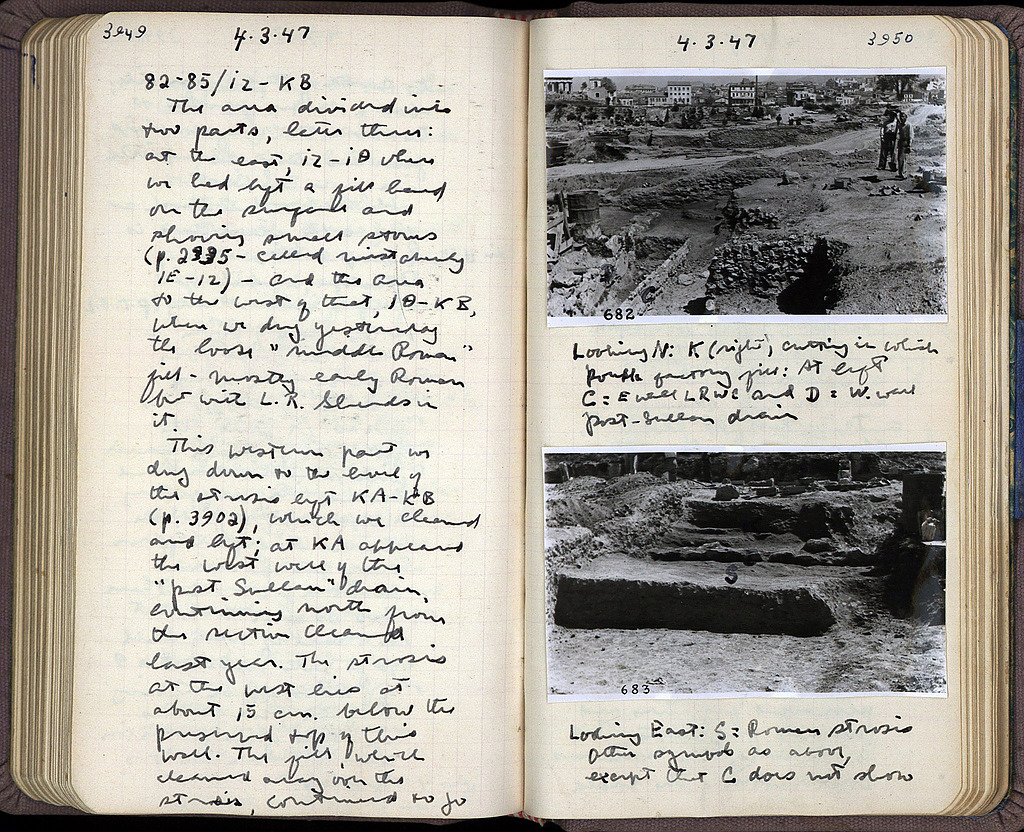 3949
4.3.47
82-85/ΙΖ-ΚΒ
The area divided into
two parts, later three:
at the east, ΙΖ-ΙΘ where
we had left a fill hard
on the surface and
showing small stones
(p. 2995 - called mistakenly
ΙΕ-ΙΖ) - and the area
to the west of that, ΙΘ-ΚΒ,
where we dug yesterday
the loose "middle Roman"
fill - mostly early Roman
but with L.R. sherds in
it.
This western part we
dug down to the level of
the strosis left ΚΑ-ΚΒ
(p. 3902), which we cleaned
and left; at ΚΑ appeared
the west wall of the
"post-Sullan" drain,
continuing north from
the section cleaned
last year. The strosis
at the west lies at
about 15 cm. below the
preserved top of this
wall. The fill, which
cleaned away over the
strosis, continued to go
4.3.47
3950
682
Looking N: K (right), cutting in which
factory fill: At left
C = E wall LRWC and D = W. wall
post-Sullan drain
S
683
Looking East: S = Roman strosis
Other symbols as above,
except that C does not show